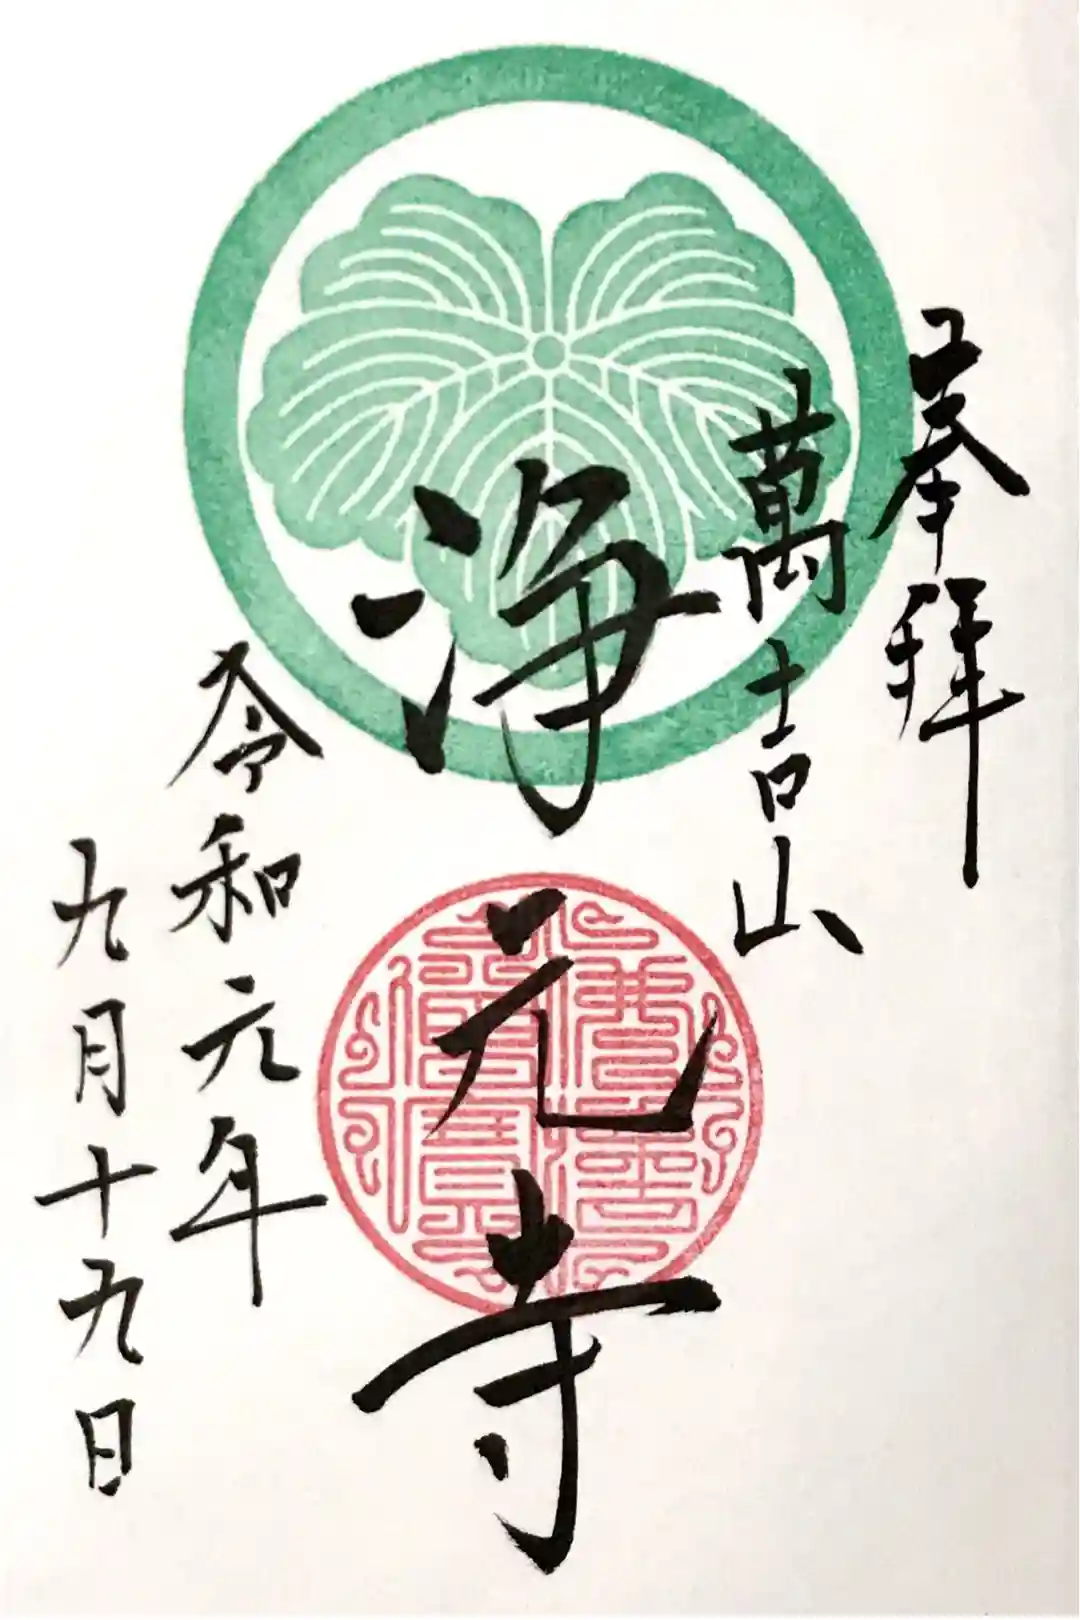 奉拜
萬吉山
浄元寺
令和元年
九月十九日